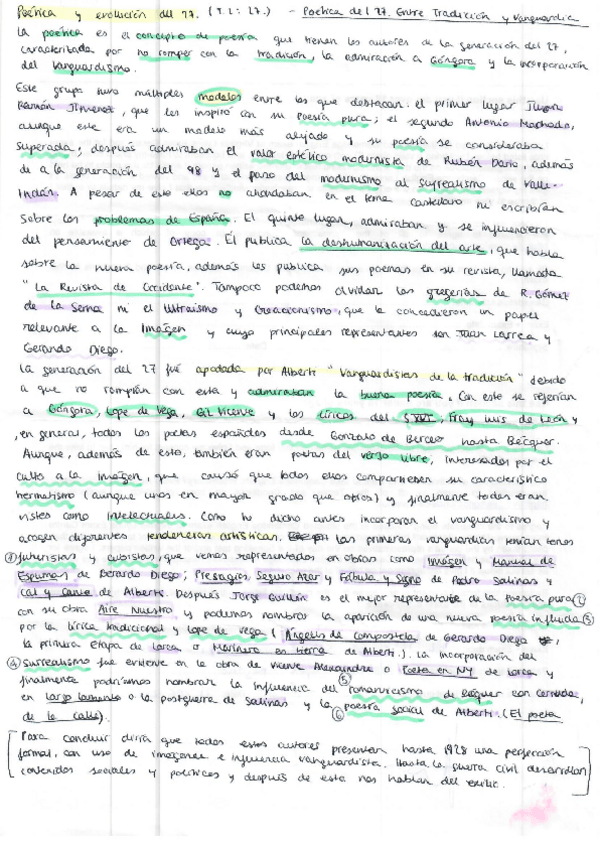 Poética y evolución del 27. (T.L: 27.) - Poética del 27. Entre Tradición y Vanguardia
La poética es el concepto de poesía que tienen los autores de la generación del 27,
caracterizada por no romper con la tradición, la admiración a Góngora y la incorporación
del Vanguardismo.
Este grupo tuvo múltiples modelos entre los que destacan: el primer lugar Juan
Ramón Jimenez, que les inspiró con su poesía pura; el segundo Antonio Machado,
aunque este era un modelo más alejado y su poesía se consideraba
superada; después admiraban el valor estético modernista de Rubén Darío, además
de a la generación del 98 y el paso del modernismo al surrealismo de Valle-
Inclán. A pesar de esto ellos no ahondaban en el tema castellano ni escribían
sobre los problemas de España. El quinto lugar, admiraban y se influencieron
del pensamiento de Ortega. Él publica la deshumanización del arte, que habla
sobre la nueva poesía, además les publica sus poemas en su revista, llamada
"La Revista de Occidente". Tampoco podemos olvidar las greguerías de R. Gómez
de la Serna ni el Ultraísmo y Creacionismo, que le concedieron un papel
relevante a la Imagen y cuyo principales representantes son Juan Larrea y
Gerardo Diego.
La generación del 27 fue apodada por Alberti "Vanguardistas de la tradición" debido
a que no rompían con esta y admiraban la buena poesía, con este se referían
a Góngora, Lope de Vega, Gil Vicente y los líricos del S XVI, Fray Luis de León y
, en general, todos los poetas españoles desde Gonzalo de Berceo hasta Bécquer.
Aunque, además de esto, también eran poetas del verso libre, interesados por el
culto a la imagen, que causó que todos ellos compartiesen su característico
hermetismo (aunque unos en mayor grado que otros) y finalmente todos eran
vistos como intelectuales. Como he dicho antes incorporan el vanguardismo y
acogen diferentes tendencias artísticas. Las primeras vanguardias tenían tonos
① futuristas y cubistas, que vemos representados en obras como Imagen y Manual de
Espumas de Gerardo Diego; Presagios, Seguro Azar y Fábula y Signo de Pedro Salinas y
Cal y Canto de Alberti. Después Jorge Guillén es el mejor representante de la poesía pura ②
con su obra Aire Nuestro y podemos nombrar la aparición de una nueva poesía influida ③
por la lírica tradicional y Lope de Vega (Ángeles de Compostela de Gerardo Diego,
la primera etapa de Lorca o Marinero en tierra de Alberti.). La incorporación del
④ surrealismo fue evidente en la obra de Vicente Aleixandre o Poeta en NY de Lorca y
finalmente podríamos nombrar la influencia del ⑤ romanticismo de Béquer con Cernuda,
en Largo lamento o la postguerra de Salinas y la ⑥ poesía social de Alberti. (El poeta
de la calle).
Para concluir diría que todos estos autores presentan hasta 1928 una perfección
formal, con uso de imágenes e influencia vanguardista. Hasta la guerra civil desarrollan
contenidos sociales y políticos y después de esta nos hablan del exilio.